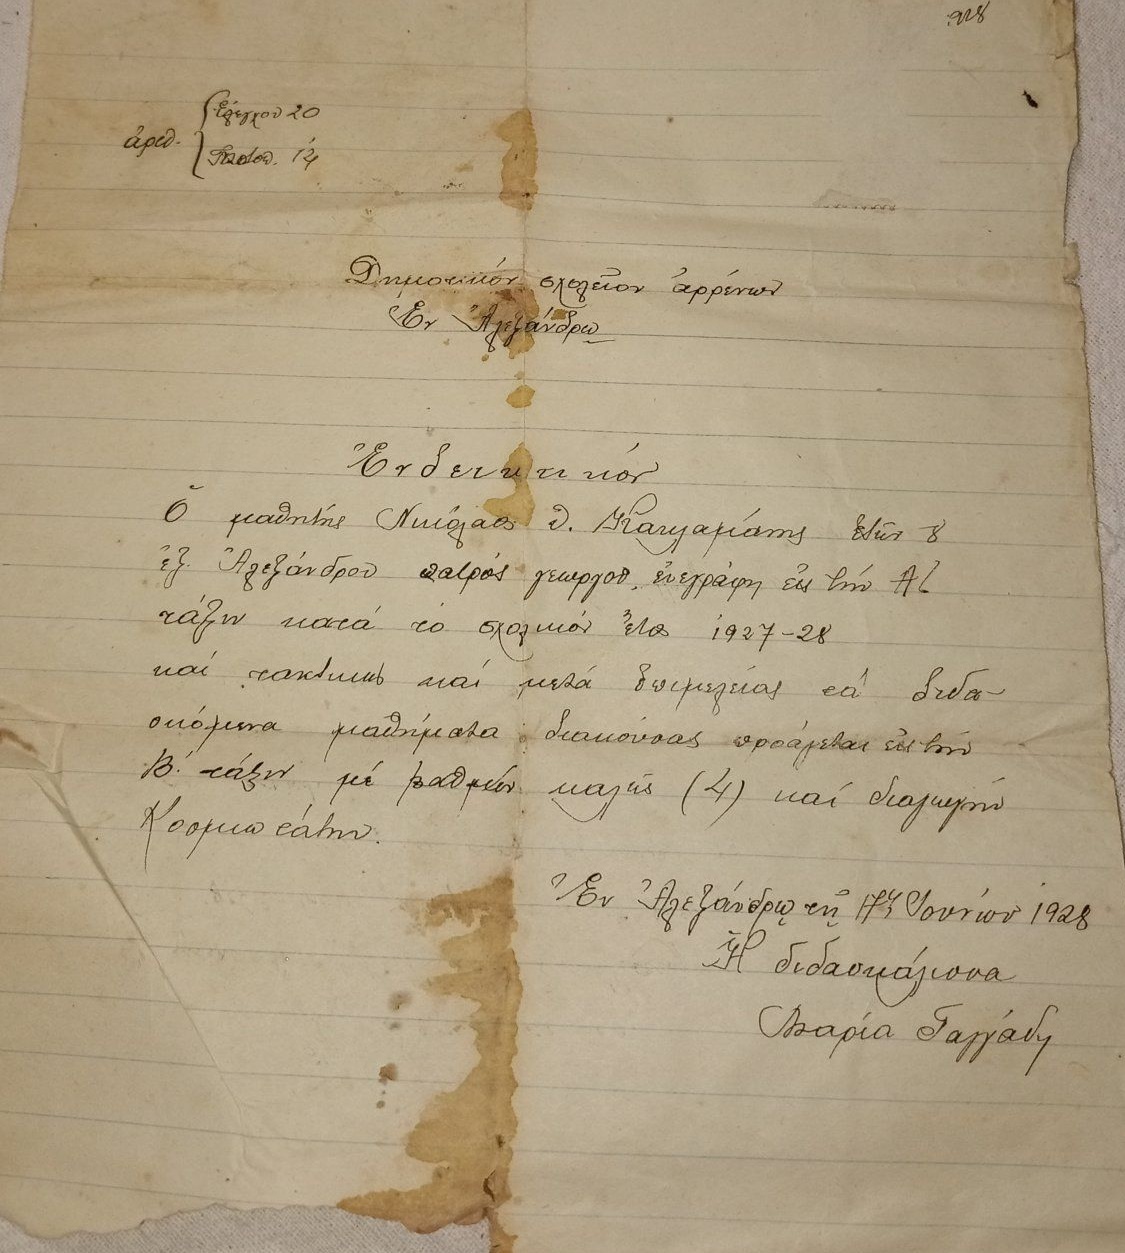 928
ἀριθ. Ἐλέγχου 20
Πιστοπ. 14
Δημοτικόν σχολεῖον ἀρρένων
Ἐν Ἀλεξάνδρῳ
Ἐνδεικτικόν
Ὁ μαθητής Νικόλαος Θ. ἐτῶν 8
ἐξ Ἀλεξάνδρου πατρός γεωργοῦ, ἐνεγράφη εἰς τήν Αʹ
τάξιν κατά τό σχολικόν ἔτος 1927-28
καί τακτικῶς καί μετά ἐπιμελείας τά διδα-
σκόμενα μαθήματα διακούσας προάγεται εἰς τήν
Β΄. τάξιν μέ βαθμόν καλῶς (4) καί διαγωγήν
Κοσμιωτάτην.
Ἐν Ἀλεξάνδρῳ τῇ 17ῃ Ἰουνίου 1928
Ἡ διδασκάλισσα
Μαρία